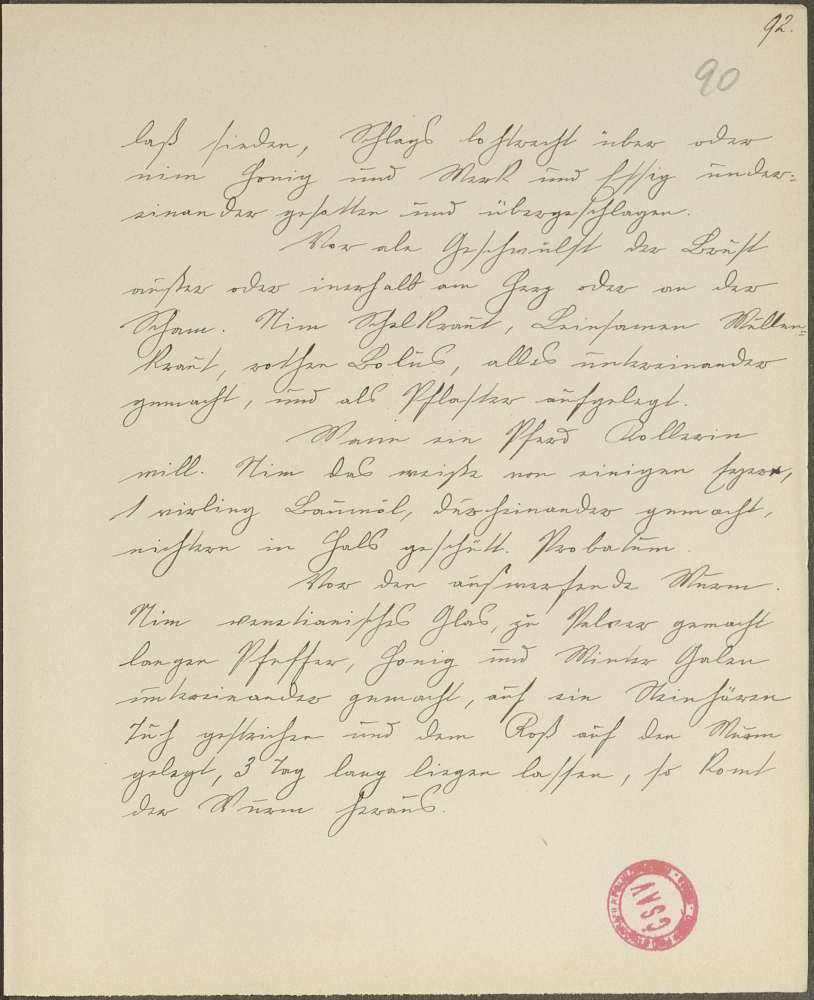 92.
90
laß sieden, Schlags lohtwecht über oder
nim Honig und Werk und Essig under=
einander gesotten und übergeschlagen.
Vor ale Geschwulst der Brust
außer oder inerhalb am Herz oder an der
Scham. Nim Schelkraut, Leinsamen Wullen=
kraut, rothen Bolus, alles untereinander
gemacht, und als Pflaster aufgelegt.
Wann ein Pferd Kollerin
will. Nim das weiße von einigen Eyern,
1 virling Baumöl, durcheinander gemacht,
nichtern in Hals geschütt. Probatum
Vor den aufwerfende Wurm.
Nim venetianisches Glas, zu Pulver gemacht
langen Pfeffer, Honig und Winter Galen
untereinander gemacht, auf ein
Tuch gestrichen und dem Roß auf den Wurm
gelegt, 3 Tag lang liegen lassen, so komt
der Wurm heraus.
ČSAV